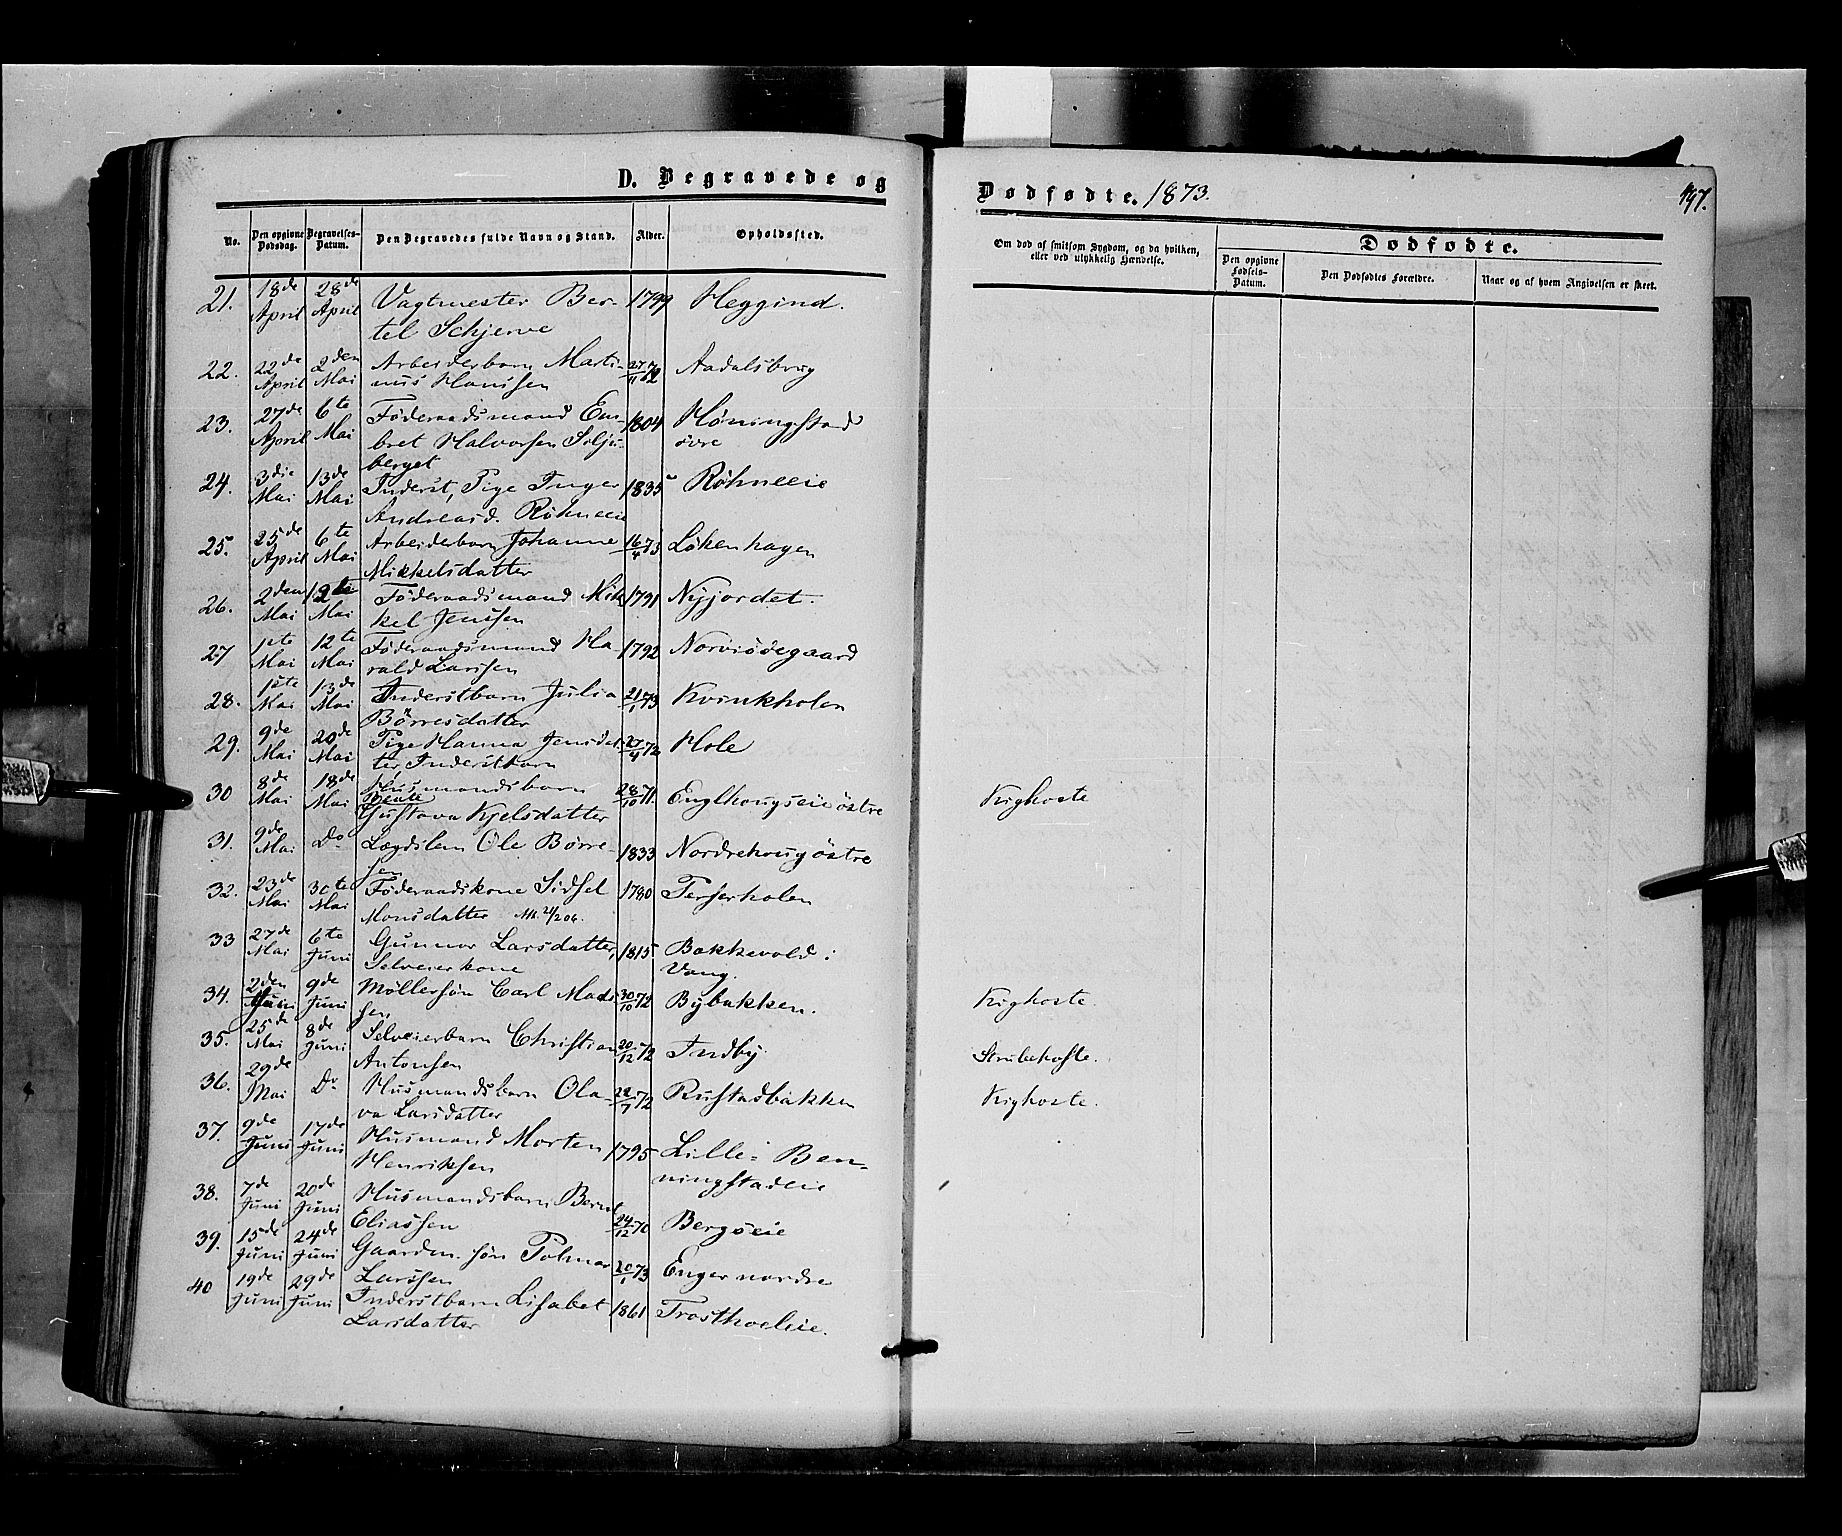 D. Begravede og
Dødfødte. 1873.
197.
No.
Den opgivne Dødsdag.
Begravelses-Datum.
Den Begravedes fulde Navn og Stand.
Alder.
Opholdssted.
Om død af smitsom Sygdom, og da hvilken,
eller ved ulykkelig Hændelse.
Dødfødte.
Den opgivne Fødsels-Datum.
Den Dødfødtes Forældre.
Naar og af hvem Angivelsen er skeet.
21. 18de April 28de April Vagtmester Ber- 1799 Heggind.
tel Schjerve
22. 22de April 2den Mai Arbeiderbarn Marti- 27/11 72 Aadalsbrug
nus Hanssen
23. 27de April 6te Mai Föderaadsmand Em- 1804 Höningstad
bret Halvorsen Silju- övre
berget
24. 3die Mai 13de Mai Inderst, Pige Inger 1835 Röhneeie
Andreasd. Röhneeie
25. 25de April 6te Mai Arbeiderbarn Johanne 16/4 73 Lökenhagen
Mikkelsdatter
26. 2den Mai 12te Mai Föderaadsmand Mik- 1791 Nyjordet.
kel Jenssen
27 1ste Mai 12te Mai Föderaadsmand Ha- 1792 Norviödegaard
rald Larssen
28. 1ste Mai 13de Mai Inderstbarn Julia 21/1 73 Kvinkholen
Börresdatter
29. 9de Mai 20de Mai Pige Hanna Jensdat- 27/4 72 Hole
ter Inderstbarn
30 8de Mai 18de Mai Husmandsbarn 28/10 71. Englhougseie östre Kighoste
Beate
Gustava Kjelsdatter
31. 9de Mai Do Lægdslem Ole Börre- 1833 Nordrehoug östre
sen
32. 23de Mai 30te Mai Föderaadskone Sidsel 1780 Terserholen
Monsdatter
33 27de Mai 6te Juni Gunnor Larsdatter, 1815. Bakkevold i
Selveierkone Vang.
34. 2den Juni 9de Juni Möllersön Carl Mads- 30/10 72 Bybakken. Kighoste.
sen
35. 25de Mai 8de Juni Selveierbarn Christian 20/12 72 Indby. Strubehoste.
Antonsen
36. 29de Mai Do Husmandsbarn Ola- 22/7 72 Rustadbakken Kighoste.
va Larsdatter
37. 9de Juni 17de Juni Husmand Morten 1795 Lille- Ben-
Henriksen ningstadeie
38. 7de Juni 20de Juni Husmandsbarn Bernt
Eliassen 24/12 70 Bergseie
39. 15de Juni 24de Juni Gaardm. sön Polmar 20/1 73 Enger nordre
Larssen
40 19de Juni 29de Juni Inderstbarn Lisabet 1861 Frosthoeleie.
Larsdatter